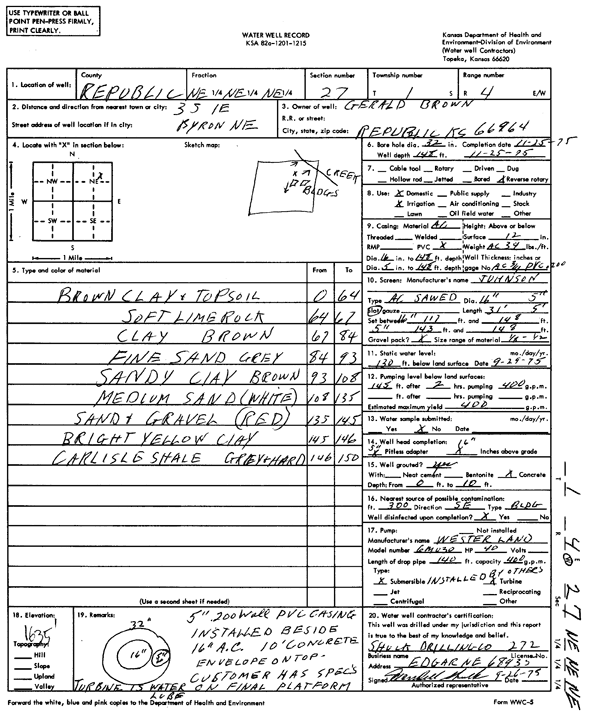 USE TYPEWRITER OR BALL
POINT PEN-PRESS FIRMLY,
PRINT CLEARLY.
WATER WELL RECORD
KSA 82a-1201-1215
Kansas Department of Health and
Environment-Division of Environment
(Water well Contractors)
Topeka, Kansas 66620
1. Location of well:
County
REPUBLIC
Fraction
NE 1/4 NE 1/4 NE 1/4
Section number
27
Township number
T 1 S
Range number
R 4 E/W
2. Distance and direction from nearest town or city: 3S 1E
Street address of well location if in city: BYRON NE
3. Owner of well: GERALD BROWN
R.R. or street:
City, state, zip code: REPUBLIC KS 66964
4. Locate with "X" in section below:
Sketch map:
N
NW NE X
W E
SW SE
S
1 Mile
1 Mile
X
CREEK
BLDGS
5. Type and color of material From To
BROWN CLAY & TOPSOIL 0 64
SOFT LIMEROCK 64 67
CLAY BROWN 67 84
FINE SAND GREY 84 93
SANDY CLAY BROWN 93 108
MEDIUM SAND (WHITE) 108 135
SAND & GRAVEL (RED) 135 145
BRIGHT YELLOW CLAY 145 146
CARLISLE SHALE GREY & HARD 146 150
(Use a second sheet if needed)
6. Bore hole dia. 32 in. Completion date 11-25-75
Well depth 148 ft. 11-25-75
7. Cable tool Rotary Driven Dug
Hollow rod Jetted Bored X Reverse rotary
8. Use: X Domestic Public supply Industry
X Irrigation Air conditioning Stock
Lawn Oil field water Other
9. Casing: Material Height: Above or below
Threaded Welded Surface 12 in.
RMP PVC X Weight AC 34 lbs./ft.
Dia. 16 in. to 148 ft. depth Wall Thickness: inches or
Dia. 5 in. to 148 ft. depth gage No. AC 3/4 PVC 200
10. Screen: Manufacturer's name JOHNSON
Type SAWED Dia. 16" 5"
Slot/gauze Length 31' 5'
Set between 16" 117 ft. and 148 ft.
5" 143 ft. and 148 ft.
Gravel pack? X Size range of material 1/8-1/2
11. Static water level: mo./day/yr.
130 ft. below land surface Date 9-25-75
12. Pumping level below land surfaces:
145 ft. after 2 hrs. pumping 400 g.p.m.
ft. after hrs. pumping g.p.m.
Estimated maximum yield 400 g.p.m.
13. Water sample submitted: mo./day/yr.
Yes X No Date
14. Well head completion: 16"
5" X Pitless adapter X Inches above grade
15. Well grouted? yes
With: Neat cement Bentonite X Concrete
Depth: From 0 ft. to 10 ft.
16. Nearest source of possible contamination:
ft. 300 Direction SE Type BLDG
Well disinfected upon completion? X Yes No
17. Pump: Not installed
Manufacturer's name WESTERLAND
Model number 6MU30 HP 40 Volts
Length of drop pipe 140 ft. capacity 400 g.p.m.
Type: INSTALLED BY OTHERS
X Submersible X Turbine
Jet Reciprocating
Centrifugal Other
18. Elevation:
1635
Topography:
Hill
Slope
Upland
Valley
19. Remarks:
32"
16"
5"
TURBINE IS WATER LUBE
5" 200 Wall PVC CASING
INSTALLED BESIDE
16" A.C. 10' CONCRETE
ENVELOPE ON TOP-
CUSTOMER HAS SPEC'S
ON FINAL PLATFORM
20. Water well contractor's certification:
This well was drilled under my jurisdiction and this report
is true to the best of my knowledge and belief.
DRILLING CO 272
Business name License No.
Address EDGAR NE 68935
Signed Date 9-26-75
Authorized representative
Forward the white, blue and pink copies to the Department of Health and Environment
Form WWC-5
T 1 R 4 E W Sec 27 1/4 NE 1/4 NE 1/4 NE